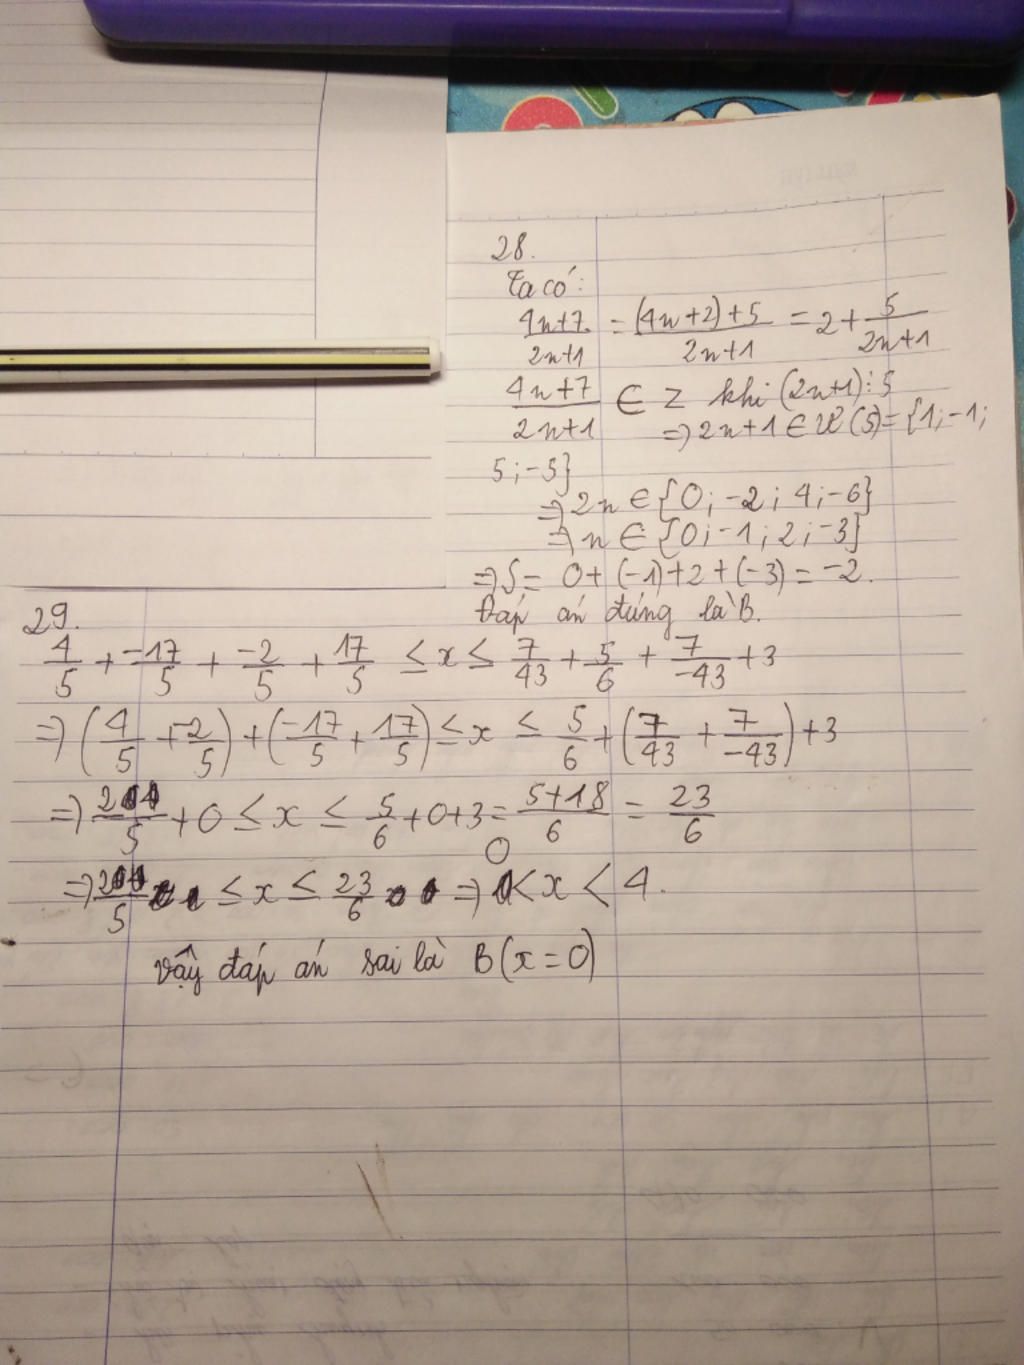 28.
Ta có:
4n+7/2n+1 = (4n+2)+5/2n+1 = 2+5/2n+1
4n+7/2n+1 ∈ Z khi (2n+1)⋮5
=> 2n+1 ∈ Ư(5)={1;-1;
5;-5}
=> 2n ∈ {0;-2;4;-6}
=> n ∈ {0;-1;2;-3}
=> S = 0+(-1)+2+(-3) = -2.
Đáp án đúng là B.
29.
4/5 + -17/5 + -2/5 + 17/5 ≤ x ≤ 7/43 + 5/6 + 7/-43 + 3
=> (4/5 + -2/5) + (-17/5 + 17/5) ≤ x ≤ 5/6 + (7/43 + 7/-43) + 3
=> 2/5 + 0 ≤ x ≤ 5/6 + 0 + 3 = 5+18/6 = 23/6
=> 2/5 ≤ x ≤ 23/6 => 0 < x < 4.
Vậy đáp án sai là B (x = 0)